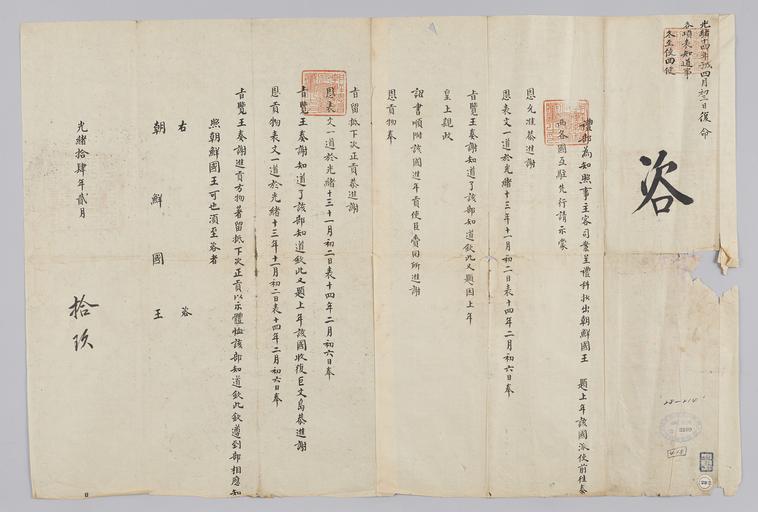 光緒十四年戊子四月初二日復命
各項表知道事
冬至使回便
咨
禮部為知照事主客司案呈禮科抄出朝鮮國王 題上年該國派使前往泰
西各國互駐先行請示蒙
恩允准恭進謝
恩表文一道於光緒十三年十一月初二日表十四年二月初六日奉
旨覽王奏謝知道了該部知道欽此又題因上年
皇上親政
詔書順附該國進年貢使臣賫回所進謝
恩貢物奉
旨留抵下次正貢恭進謝
恩表文一道於光緒十三十一月初二日表十四年二月初六日奉
旨覽王奏謝知道了該部知道欽此又題上年該國收復巨文島恭進謝
恩貢物表文一道於光緒十三年十一月初二日表十四年二月初六日奉
旨覽王奏謝進貢方物著留抵下次正貢以示體恤該部知道欽此欽遵到部相應知
照朝鮮國王可也須至咨者
右 咨
朝鮮國王
光緒拾肆年貳月
拾玖
日